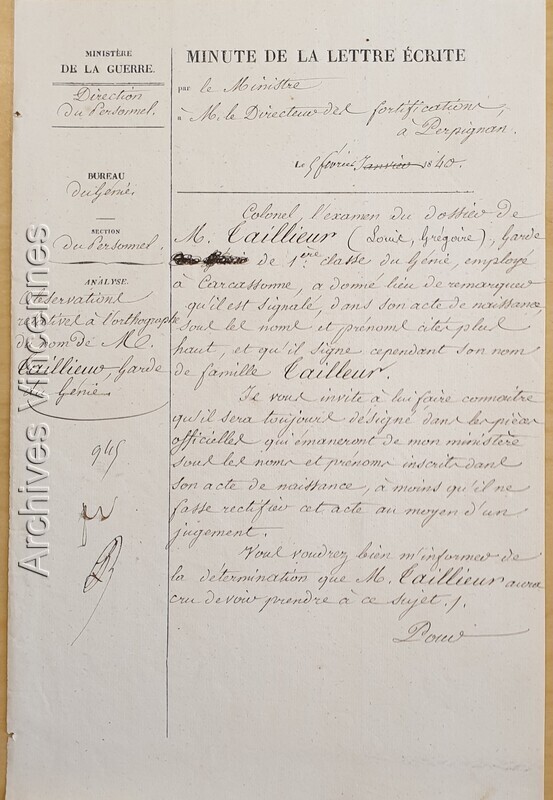 MINISTÈRE
DE LA GUERRE.
Direction
du Personnel.
BUREAU
du Génie
SECTION
du Personnel.
ANALYSE.
Observations
relatives à l'orthographe
du nom de M.
Taillieur, Garde
du Génie.
945
MINUTE DE LA LETTRE ÉCRITE
par le Ministre
à M. le Directeur des fortifications,
à Perpignan.
Le 5 février Janvier 1840.
Colonel, l'examen du dossier de
M. Taillieur (Louis, Grégoire), Garde
de 1ère classe du Génie, employé
à Carcassonne, a donné lieu de remarquer
qu'il est signalé, dans son acte de naissance,
sous les noms et prénoms cités plus
haut, et qu'il signe cependant son nom
de famille Tailleur.
Je vous invite à lui faire connaître
qu'il sera toujours désigné dans les pièces
officielles qui émaneront de mon ministère
sous les noms et prénoms inscrits dans
son acte de naissance, à moins qu'il ne
fasse rectifier cet acte au moyen d'un
jugement.
Vous voudrez bien m'informer de
la détermination que M. Taillieur aura
cru devoir prendre à ce sujet.
Archives Vincennes